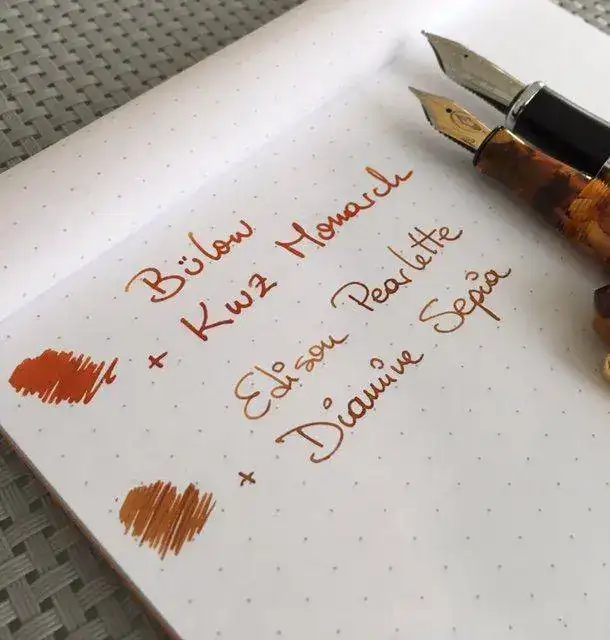 Bülow
+ KWZ Monarch
Edison Pearlette
+ Diamine Sepia